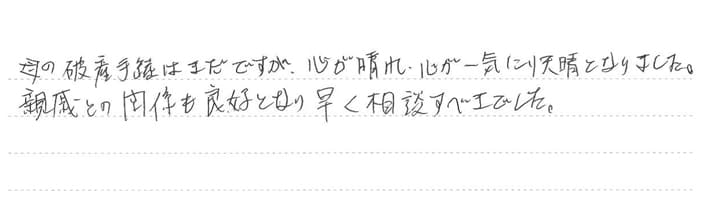 母の破産手続はまだですが、心が晴れ、心が一気に快晴となりました。
親戚との関係も良好となり早く相談すべきでした。